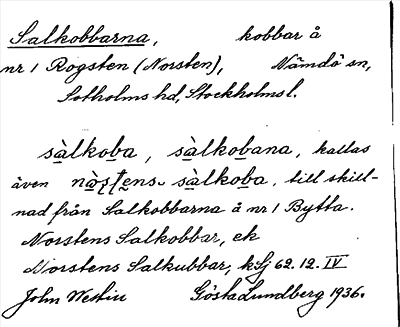 Salkobbarna, kobbar å
nr 1 Rogsten (Norsten), Nämdö sn,
Sotholms hd, Stockholms l.
sàlkoba, sàlkobana, kallas
även nàʂtens. sàlkoba, till skill-
nad från Salkobbarna å nr 1 Bytta.
Norstens Salkobbar, ek
Norstens Salkubbar, kSj 62.12.IV
John Westin Gösta Lundberg 1936.